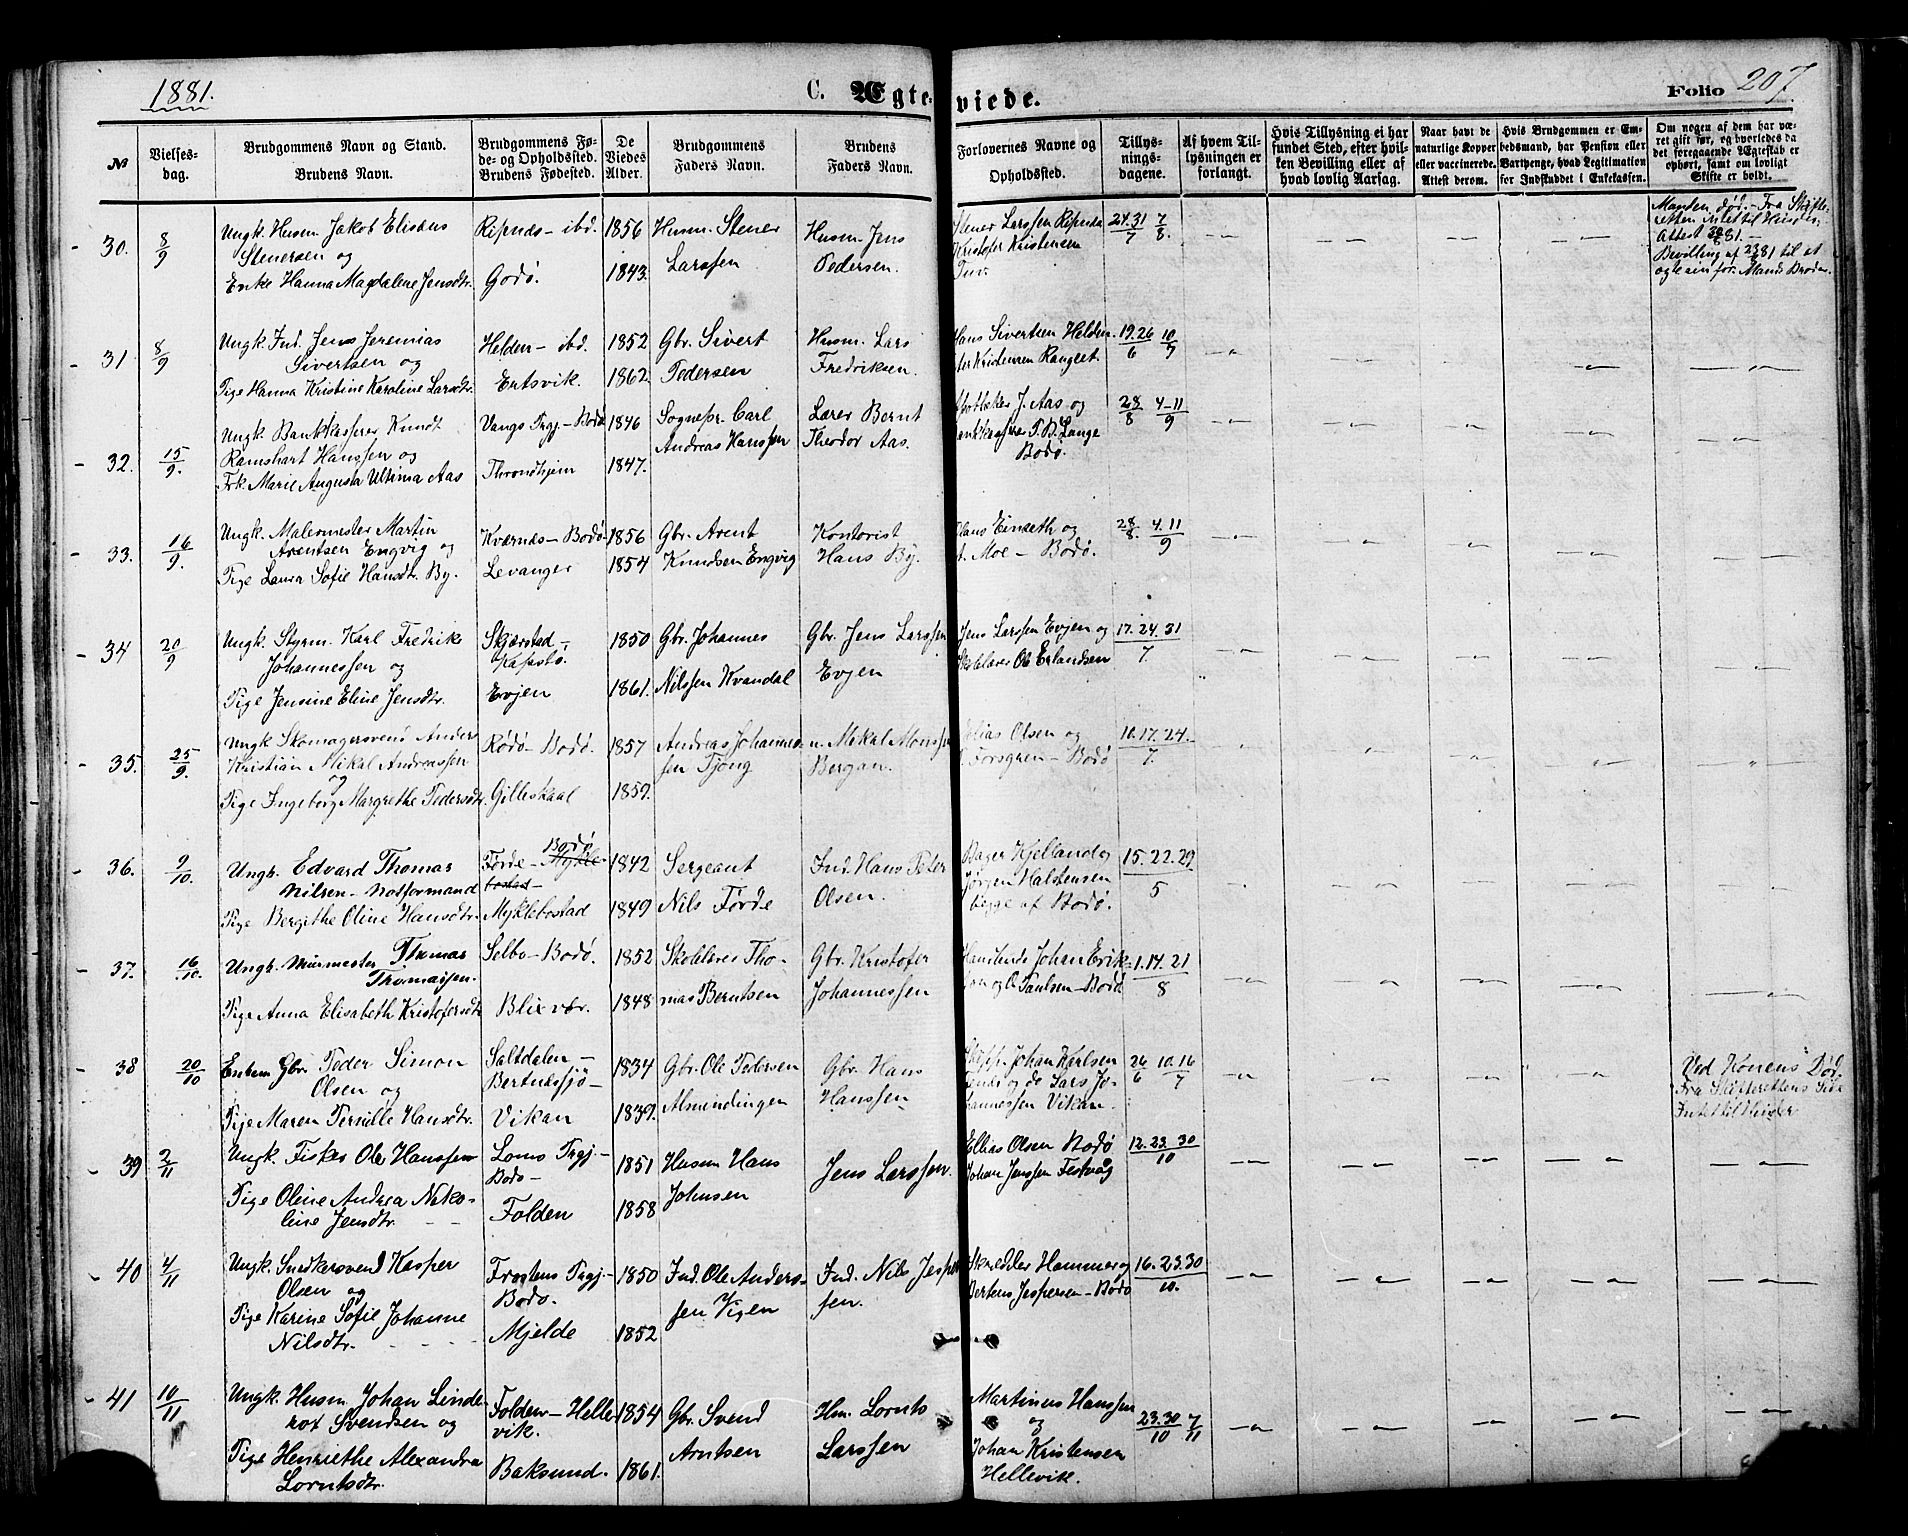 1881.
C. Ægte-
viede.
Folio 207
No
Vielses-
dag.
Brudgommens Navn og Stand.
Brudens Navn.
Brudgommens Fø-
de- og Opholdssted.
Brudens Fødested.
De
Viedes
Alder.
Brudgommens
Faders Navn.
Brudens
Faders Navn.
Forlovernes Navne og
Opholdssted.
Tillys-
nings-
dagene.
Af hvem Til-
lysningen er
forlangt.
Hvis Tillysning ei har
fundet Sted, efter hvil-
ken Bevilling eller af
hvad lovlig Aarsag.
Naar havt de
naturlige Kopper
eller vaccinerede.
Attest derom.
Hvis Brudgommen er Em-
bedsmand, har Pension eller
Vartpenge, hvad Legitimation
for Indskuddet i Enkekassen.
Om nogen af dem har væ-
ret gift før, og hvorledes da
det foregaaende Ægteskab er
ophørt, samt om lovligt
Skifte er holdt.
30. 8/9
Ungk. Husm. Jakob Elisæus
Stenersen og
Enke Hanna Magdalene Jensdtr.
Ripnæs - ibd.
Godø.
1856
1843.
Husm. Stener
Larssen
Husm. Jens
Pedersen.
Stener Larssen Ripnæs
Kristofer Kristensen
24.31/7 7/8.
Manden død. - Fra Skifte-
retten intet til Hinder,
Attest
Bevilling af 81 til at
ægte sin for. Mands Broder.
31 8/9
Ungk. Ind. Jens Jeremias
Sivertsen og
Pige Hanna Kristine Karoline Larsdtr.
Helden - ibd.
Ertsvik.
1852
1862.
Gbr. Sivert
Pedersen
Husm. Lars
Fredriksen.
Hans Sivertsen Helden
19.26/6 10/7
32. 15/9.
Ungk. Bankkasserer Knudt
Ramshart Hanssen og
Frk. Marie Augusta Ultima Aas
Vangs Prgj - Bodø
Throndhjem
1846
1847.
Sognepr. Carl
Andreas Hanssen
Lærer Bernt
Theodor Aas.
Apotheker J. Aas og
Bankkasserer P. D. Lange
Bodø.
28/8 4-11/9
33. 16/9.
Ungk. Malermester Martin
Arentsen Engvig og
Pige Laura Sofie Hansdtr. By.
Kværnæs - Bodø
Levanger
1856
1854
Gbr. Arent
Knudsen Engvig
Kontorist
Hans By.
Moe - Bodø.
28/8. 4.11/9
34 20/9
Ungk. Styrm. Karl Fredrik
Johannessen og
Pige Jensine Eline Jensdtr.
Skjærstad -
Evjen
1850
1861.
Gbr. Johannes
Nilssen Kvandal
Gbr. Jens Larssen
Evjen
Jens Larssen Evjen og
Skolelærer Ole Erlandsen
17.24.31/7.
35. 25/9.
Ungk Skomagersvend Anders
Kristian Mikal Andreassen
og
Pige Ingeborg Margrethe Pedersdtr.
Rødø - Bodø.
Gilleskaal
1857
1859.
Andreas Johannes-
sen Tjong
Mikal Monssen
Bergan.
Elias Olsen og
Forsgren - Bodø
10.17.24./7.
36. 9/10.
Ungk. Edvard Thomas
Nilsen - Notformand
Pige Bergithe Oline Hansdtr.
Bodø
Førde - Mykle-
bostad -
Myklebostad
1842
1849
Sergeant
Nils Førde
Ind. Hans Peder
Olsen.
Bager Kjelland og
Jørgen Halstensen
begge af Bodø.
15.22.29/5
37. 16/10.
Ungk. Murmester Thomas
Thomassen.
Pige Anna Elisabeth Kristofersdtr
Selbo - Bodø.
Blixvær.
1852
1848
Skolelærer Tho-
mas Berntsen
Gbr. Kristofer
Johannessen
Johan Erik-
sen og O Paulsen - Bodø
1.14.21/8
38 20/10
Enkem. Gbr. Peder Simon
Olsen og
Pige Maren Pernille Hansdtr.
Saltdalen -
Bertnessjø -
Vikan
1834
1839.
Gbr. Ole Pedersen
Almindingen
Gbr. Hans
Hanssen
Skipp. Johan Karlsen
og do Lars Jo-
hannessen Vikan.
26/6 10.16/7
Ved Konens Død.
Fra Skifterettens Side
Intet til Hinder
39 2/11
Ungk. Fisker Ole Hanssen
Pige Oline Andrea Niko-
line Jensdtr.
Loms Prgj. -
Bodø -
Folden
1851
1858
Husm Hans
Johnsen
Jens Larssen.
Ellias Olsen Bodø
Johan Jenssen Festvåg
12.23.30/10
40 4/11
Ungk. Snedkersvend Kasper
Olsen og
Pige Karine Sofie Johanne
Nilsdtr.
Frostens Prgj. -
Bodø.
Mjelde
1850
1852
Ind. Ole Anders-
sen Vigen
Ind. Nils Jesper-
sen.
Skrædder Hammer og
Bertens Jespersen - Bodø
16.23.30/10.
41 10/11
Ungk. Husm. Johan Linde-
rot Svendsen og
Pige Henriethe Alexandra
Lorntsdtr.
Folden - Helle-
vik.
Baksund.
1854
1861.
Gbr. Svend
Arntsen
Hm. Lornts
Larssen
Martinus Hanssen
og
Johan Kristensen
Hellevik.
23.30/10 7/11